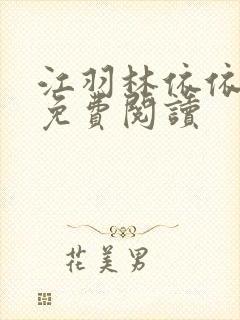 江羽林依依
免費閱讀
花美男